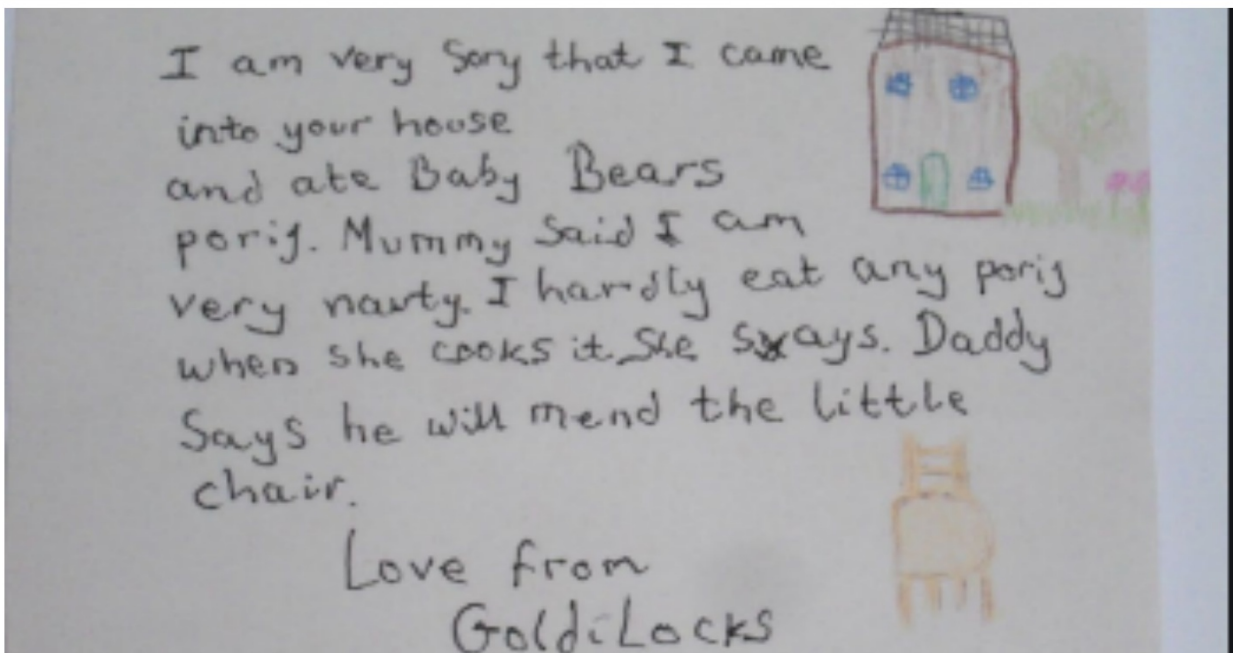 I am very Sory that I came
into your house
and ate Baby Bears
porij. Mummy Said I am
very nauty. I hardly eat any porij
when she cooks it she says. Daddy
Says he will mend the little
chair.
Love from
GoldiLocks